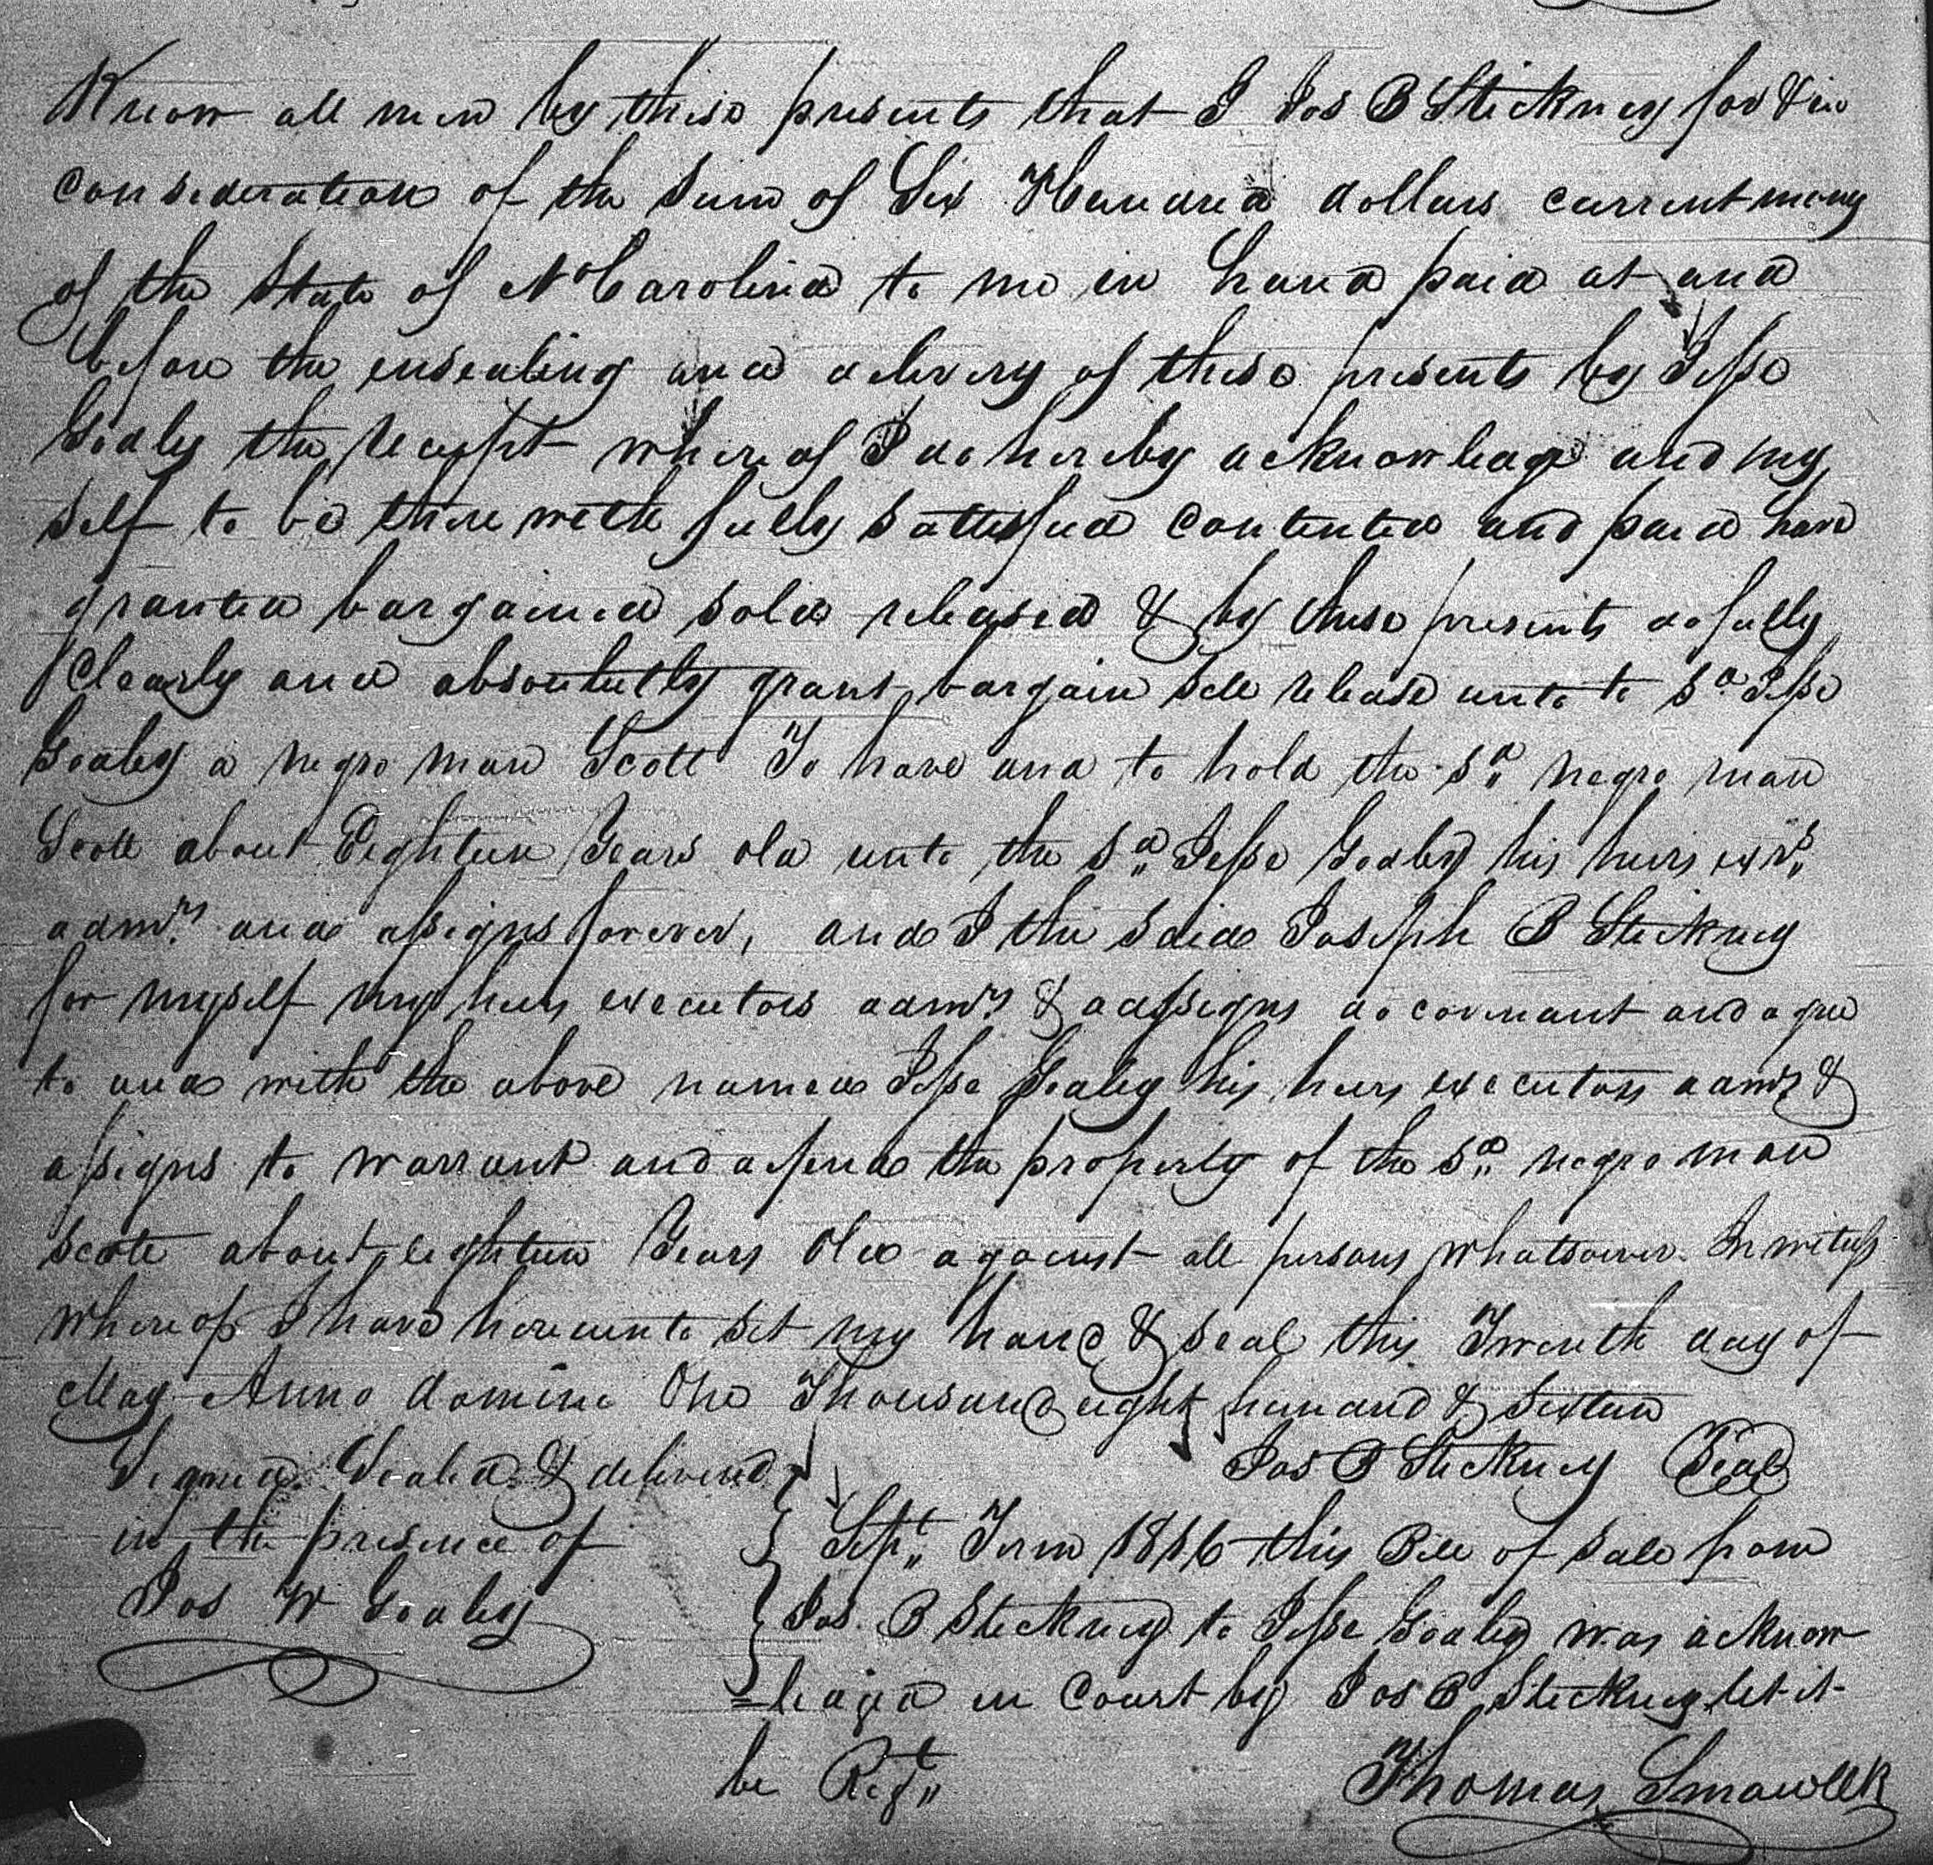 Know all men by these presents that I Jos B Stickney for & in
consideration of the Sum of Six Hundred dollars current money
of the State of N Carolina to me in hand paid at and
before the ensealing and delivery of these presents by Jesse
Godley the receipt where of I do hereby acknowledge and my
self to be there with fully satisfied contented and paid have
granted bargained sold released & by these presents do fully
Clearly and absoulutly grant bargain sell release unto to sd Jesse
Godley a negro man Scott To have and to hold the sd negro man
Scott about Eighteen Years old unto the sd Jesse Godley his heirs exrs
admrs and assigns forever, and I the said Joseph B Stickney
for myself my heirs executors admrs & adssigns do covenant and agree
to and with the above named Jesse Godley his heirs executors admrs &
assigns to warrant and defend the property of the sd negro man
Scott about eighteen Years Old against all persons whatsoever In witness
where of I have hereunto set my hand & seal this Twenth day of
May Anno domini One Thousand eight hundard & Sixteen
Signed Sealed & delivered
in the presence of
Jos W Godley
Jos B Stickney Seal
Sept Term 1816 this Bill of Sale from
Jos. B Stickney to Jesse Godley was acknow
=ledged in Court by Jos B Stickney let it
be Regt
Thomas Smaw CCK